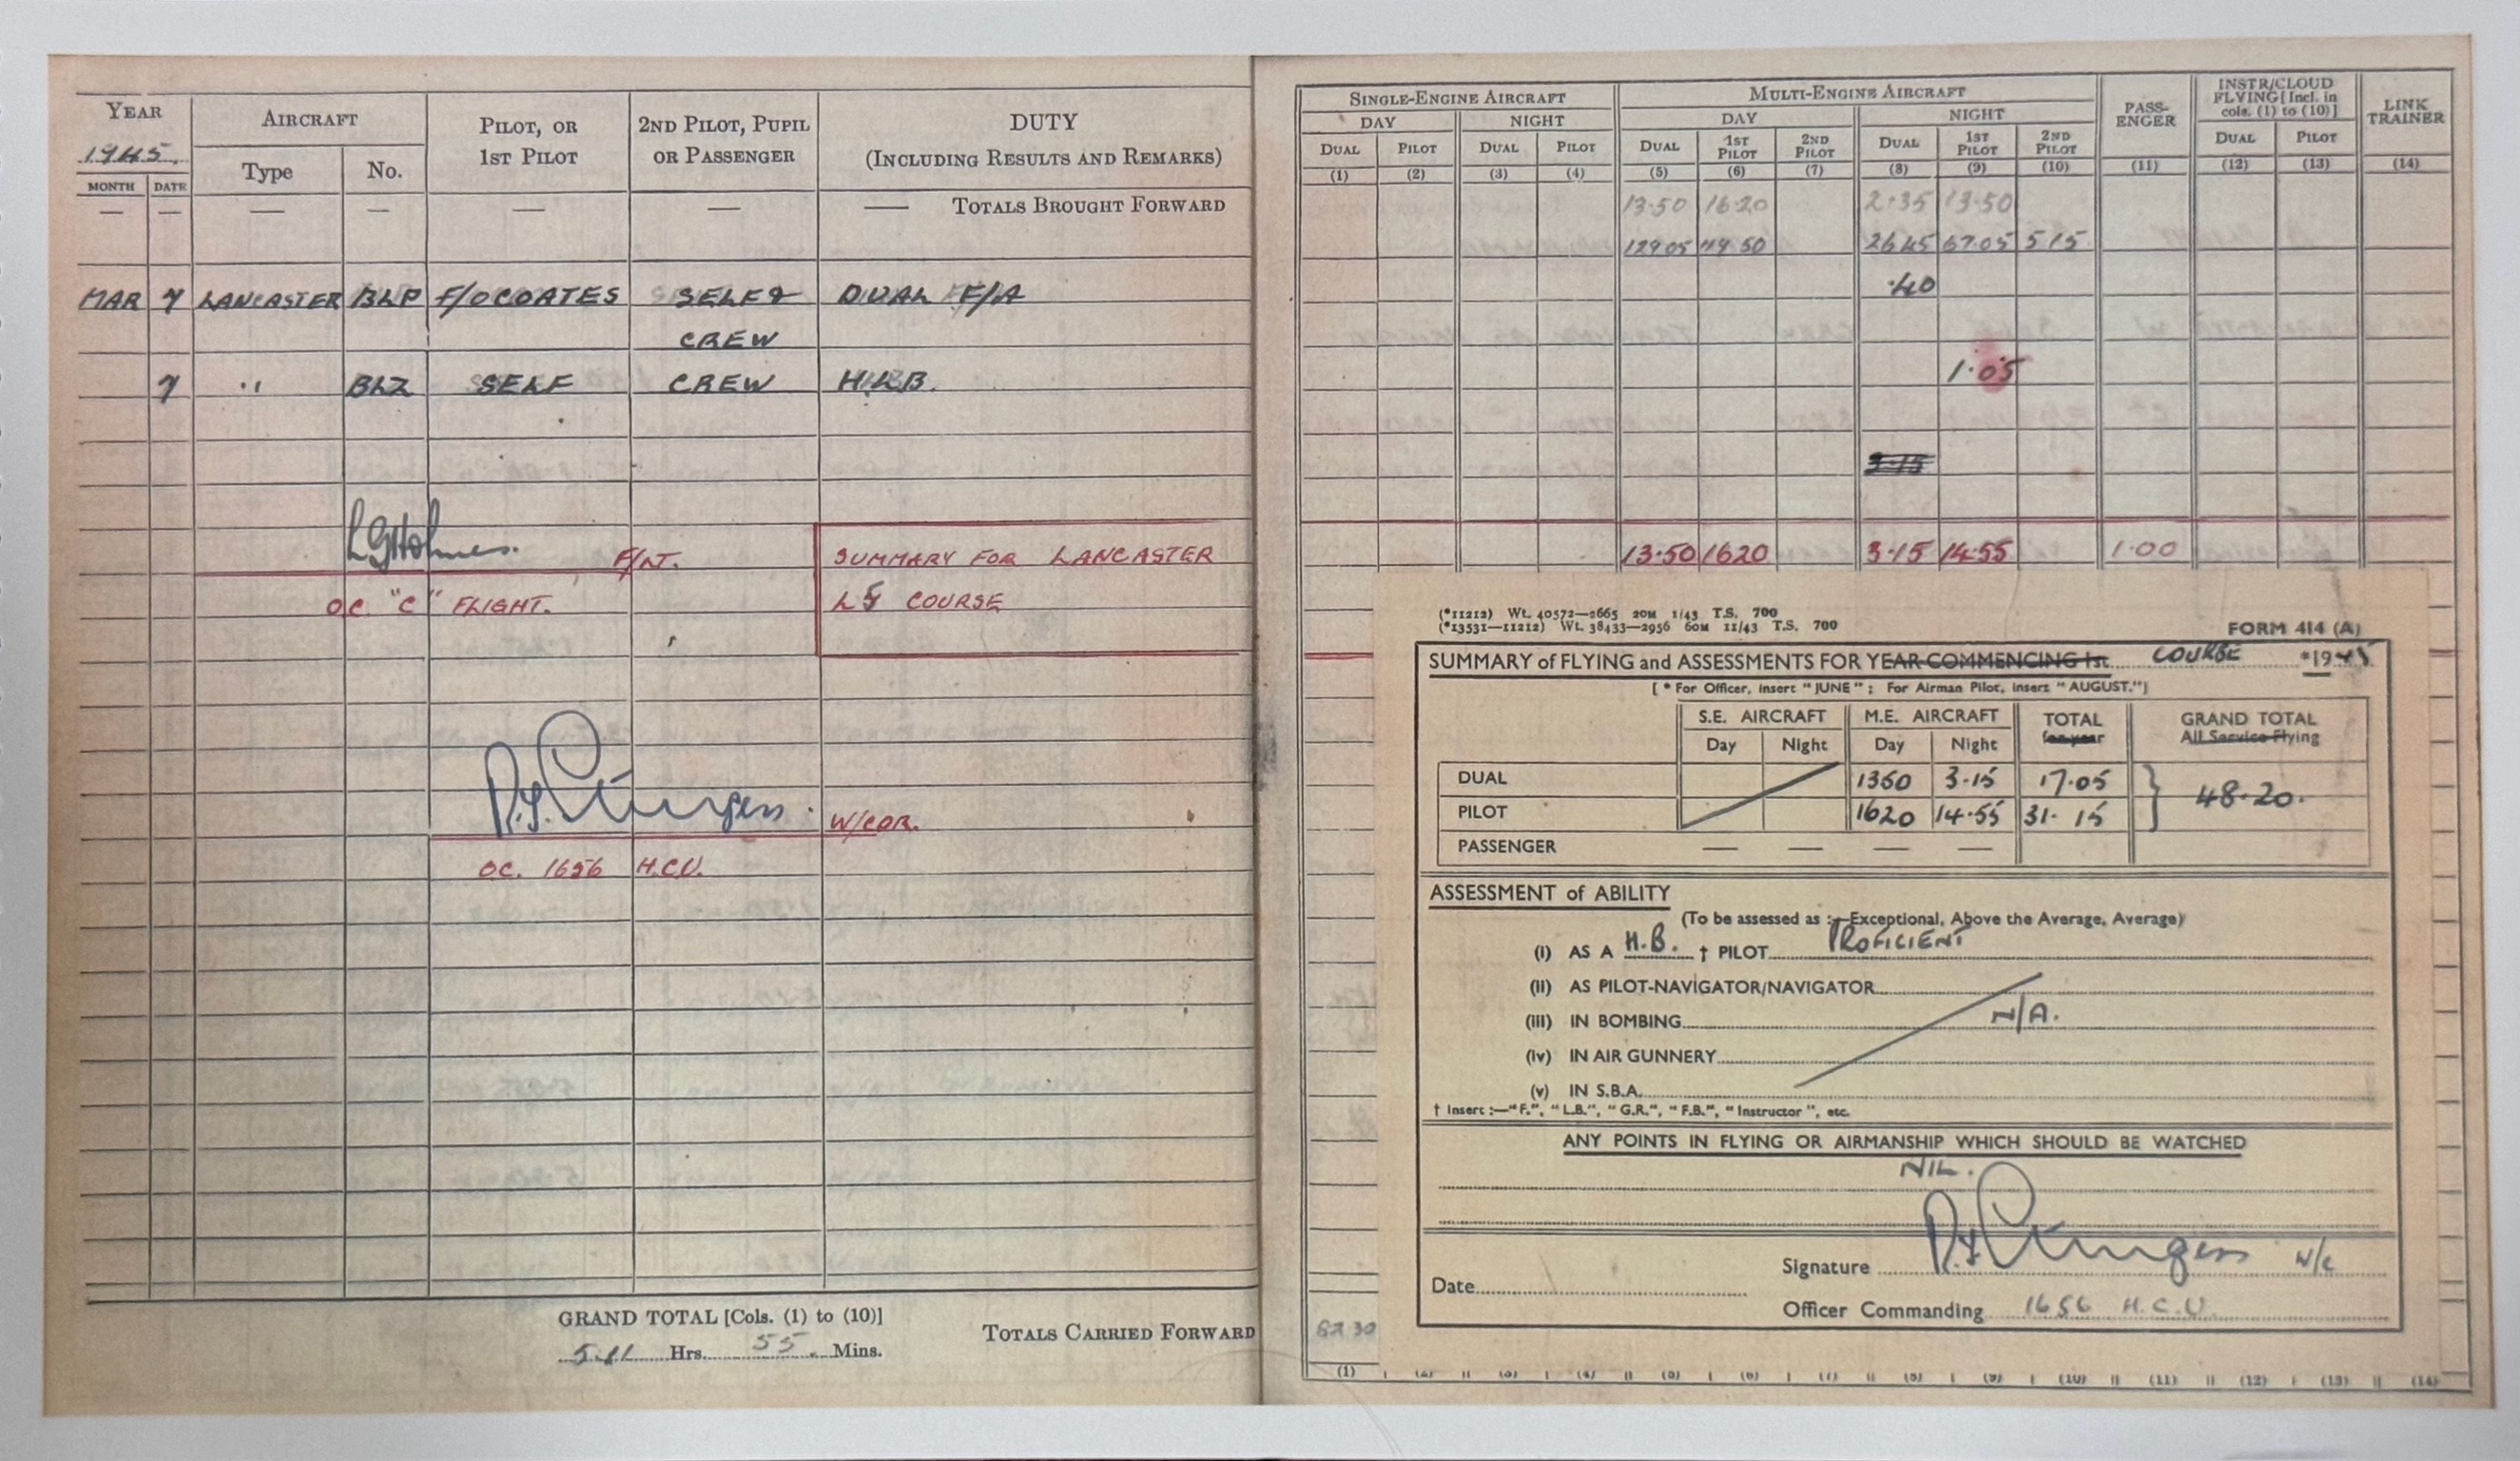 YEAR AIRCRAFT PILOT, OR 1ST PILOT 2ND PILOT, PUPIL OR PASSENGER DUTY (INCLUDING RESULTS AND REMARKS)
1945. Type No.
MONTH DATE
— — — — — — — TOTALS BROUGHT FORWARD
MAR 7 LANCASTER BLP F/O COATES SELF & DUAL F/A
CREW
7 " BLZ SELF CREW H.L.B.
LGHolmes. F/LT. SUMMARY FOR LANCASTER
OC. "C" FLIGHT. COURSE
W/CDR.
OC. 1656 H.C.U.
GRAND TOTAL [Cols. (1) to (10)]
511 Hrs. 55 Mins.
TOTALS CARRIED FORWARD
SINGLE-ENGINE AIRCRAFT MULTI-ENGINE AIRCRAFT PASS-ENGER INSTR/CLOUD FLYING [Incl. in cols. (1) to (10)] LINK TRAINER
DAY NIGHT DAY NIGHT
DUAL PILOT DUAL PILOT DUAL 1ST PILOT 2ND PILOT DUAL 1ST PILOT 2ND PILOT DUAL PILOT
(1) (2) (3) (4) (5) (6) (7) (8) (9) (10) (11) (12) (13) (14)
13.50 16.20 2.35 13.50
129.05 119.50 26.45 67.05 5.15
.40
1.05
3.15
13.50 1620 3.15 14.55 1.00
(*11212) Wt. 40572—2665 20M 1/43 T.S. 700
(*13531—11212) Wt. 38433—2956 60M 11/43 T.S. 700
FORM 414 (A)
SUMMARY of FLYING and ASSESSMENTS FOR YEAR COMMENCING 1st COURSE *1945
[* For Officer, insert "JUNE"; For Airman Pilot, insert "AUGUST."]
S.E. AIRCRAFT M.E. AIRCRAFT TOTAL for year GRAND TOTAL All Service Flying
Day Night Day Night
DUAL 1350 3.15 17.05
48.20.
PILOT 1620 14.55 31.15
PASSENGER — — — —
ASSESSMENT of ABILITY
(To be assessed as :—Exceptional, Above the Average, Average)
(i) AS A H.B. † PILOT PROFICIENT
(ii) AS PILOT-NAVIGATOR/NAVIGATOR
(iii) IN BOMBING N/A.
(iv) IN AIR GUNNERY
(v) IN S.B.A.
† Insert :—"F.", "L.B.", "G.R.", "F.B.", "Instructor", etc.
ANY POINTS IN FLYING OR AIRMANSHIP WHICH SHOULD BE WATCHED
NIL.
Signature W/C
Date
Officer Commanding 1656 H.C.U.
(1) (2) (3) (4) (5) (6) (7) (8) (9) (10) (11) (12) (13) (14)